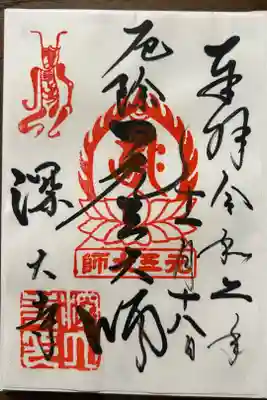 奉拝 令和六年
十一月十八日
厄除元三大師
深大寺
元三大師